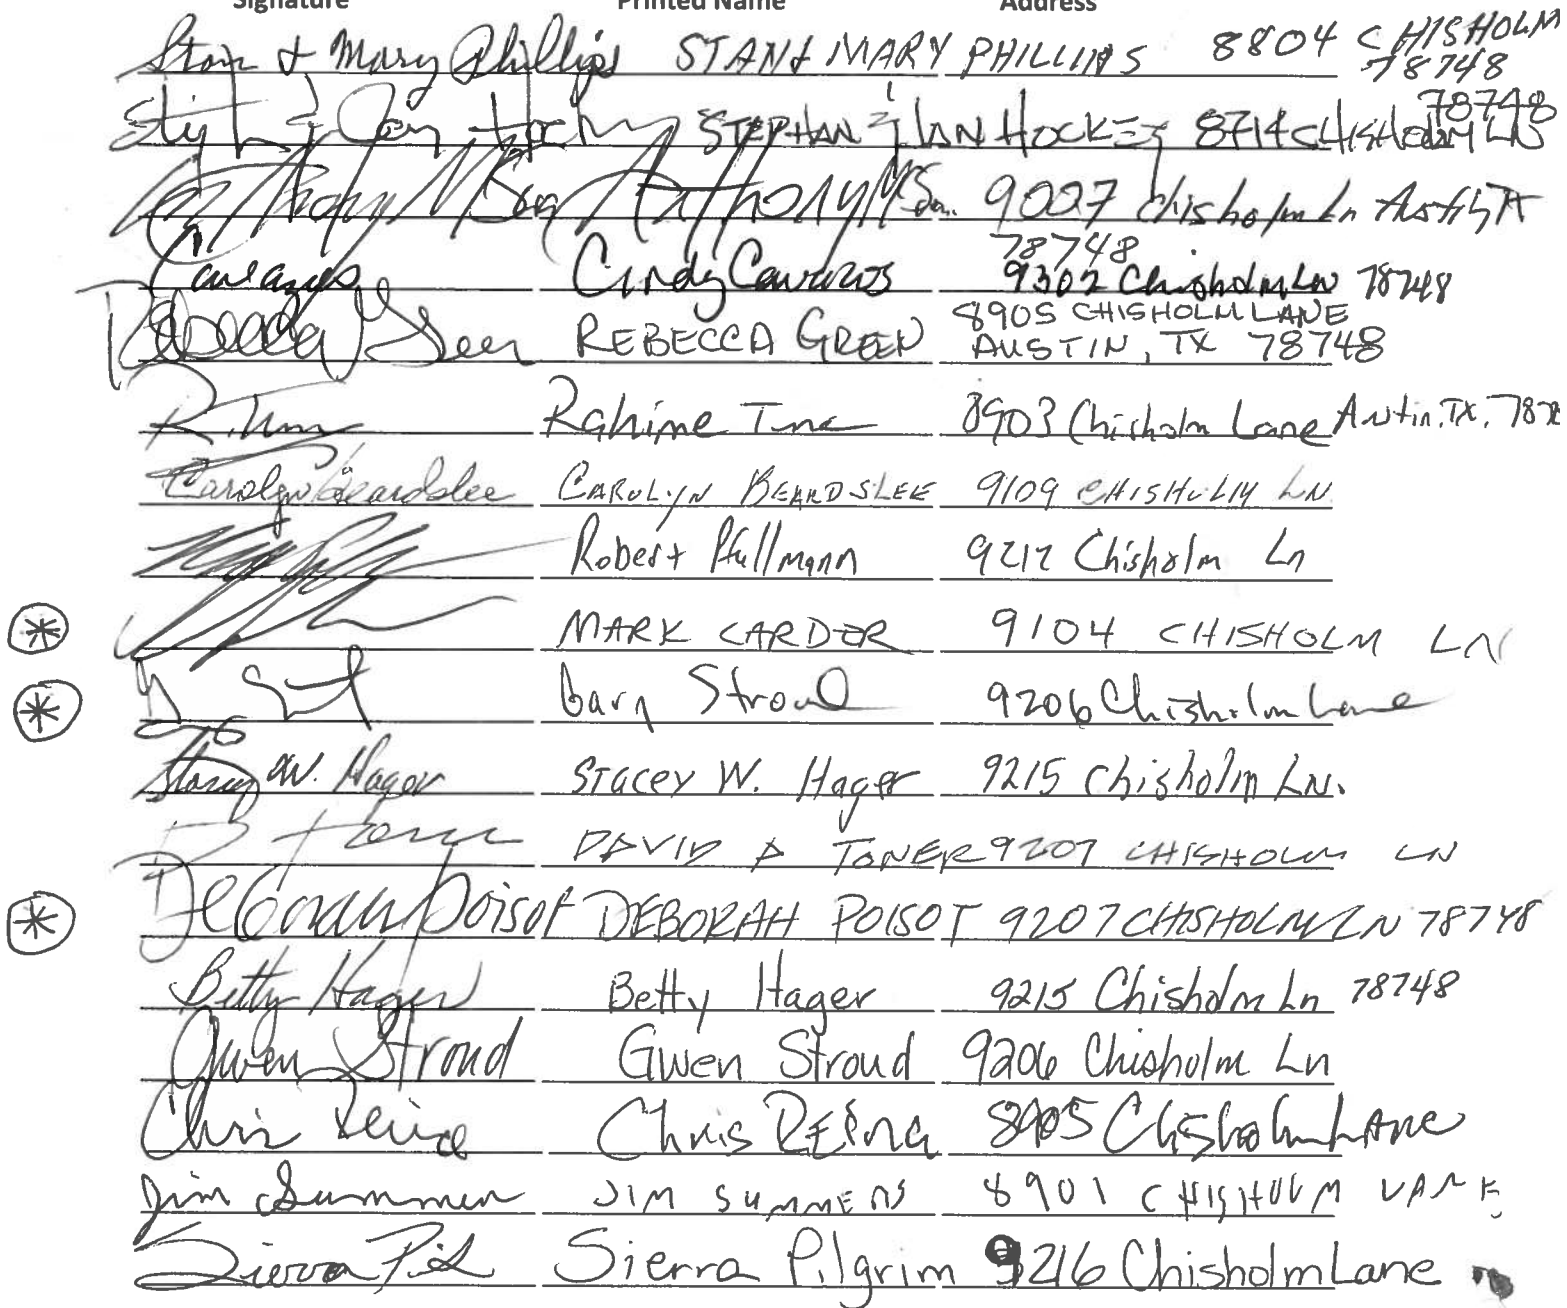 Signature Printed Name Address
Stan & Mary Phillips STAN & MARY PHILLIPS 8804 CHISHOLM
78748
78748
STEPHAN & JAN HOCKEY 8714 CHISHOLM LN
Anthony 9027 Chisholm Ln Austin TX
78748
Cavazos Cindy Cavazos 9302 Chisholm Ln 78748
Rebecca Green REBECCA GREEN 8905 CHISHOLM LANE
AUSTIN, TX 78748
Rahime 8903 Chisholm Lane Austin, TX, 787
Carolyn Beardslee CAROLYN BEARDSLEE 9109 CHISHOLM LN
Robert Pfullmann 9212 Chisholm Ln
MARK CARDER 9104 CHISHOLM LN
Gary Stroud 9206 Chisholm Lane
Stacey W. Hager Stacey W. Hager 9215 Chisholm LN.
D Toner DAVID A TONER 9207 CHISHOLM LN
Deborah Poisot DEBORAH POISOT 9207 CHISHOLM LN 78748
Betty Hager Betty Hager 9215 Chisholm Ln 78748
Gwen Stroud Gwen Stroud 9206 Chisholm Ln
Chris Reina Chris REina 8905 Chisholm LAne
Jim Summers JIM SUMMERS 8901 CHISHOLM LANE
Sierra Pil Sierra Pilgrim 9216 Chisholm Lane